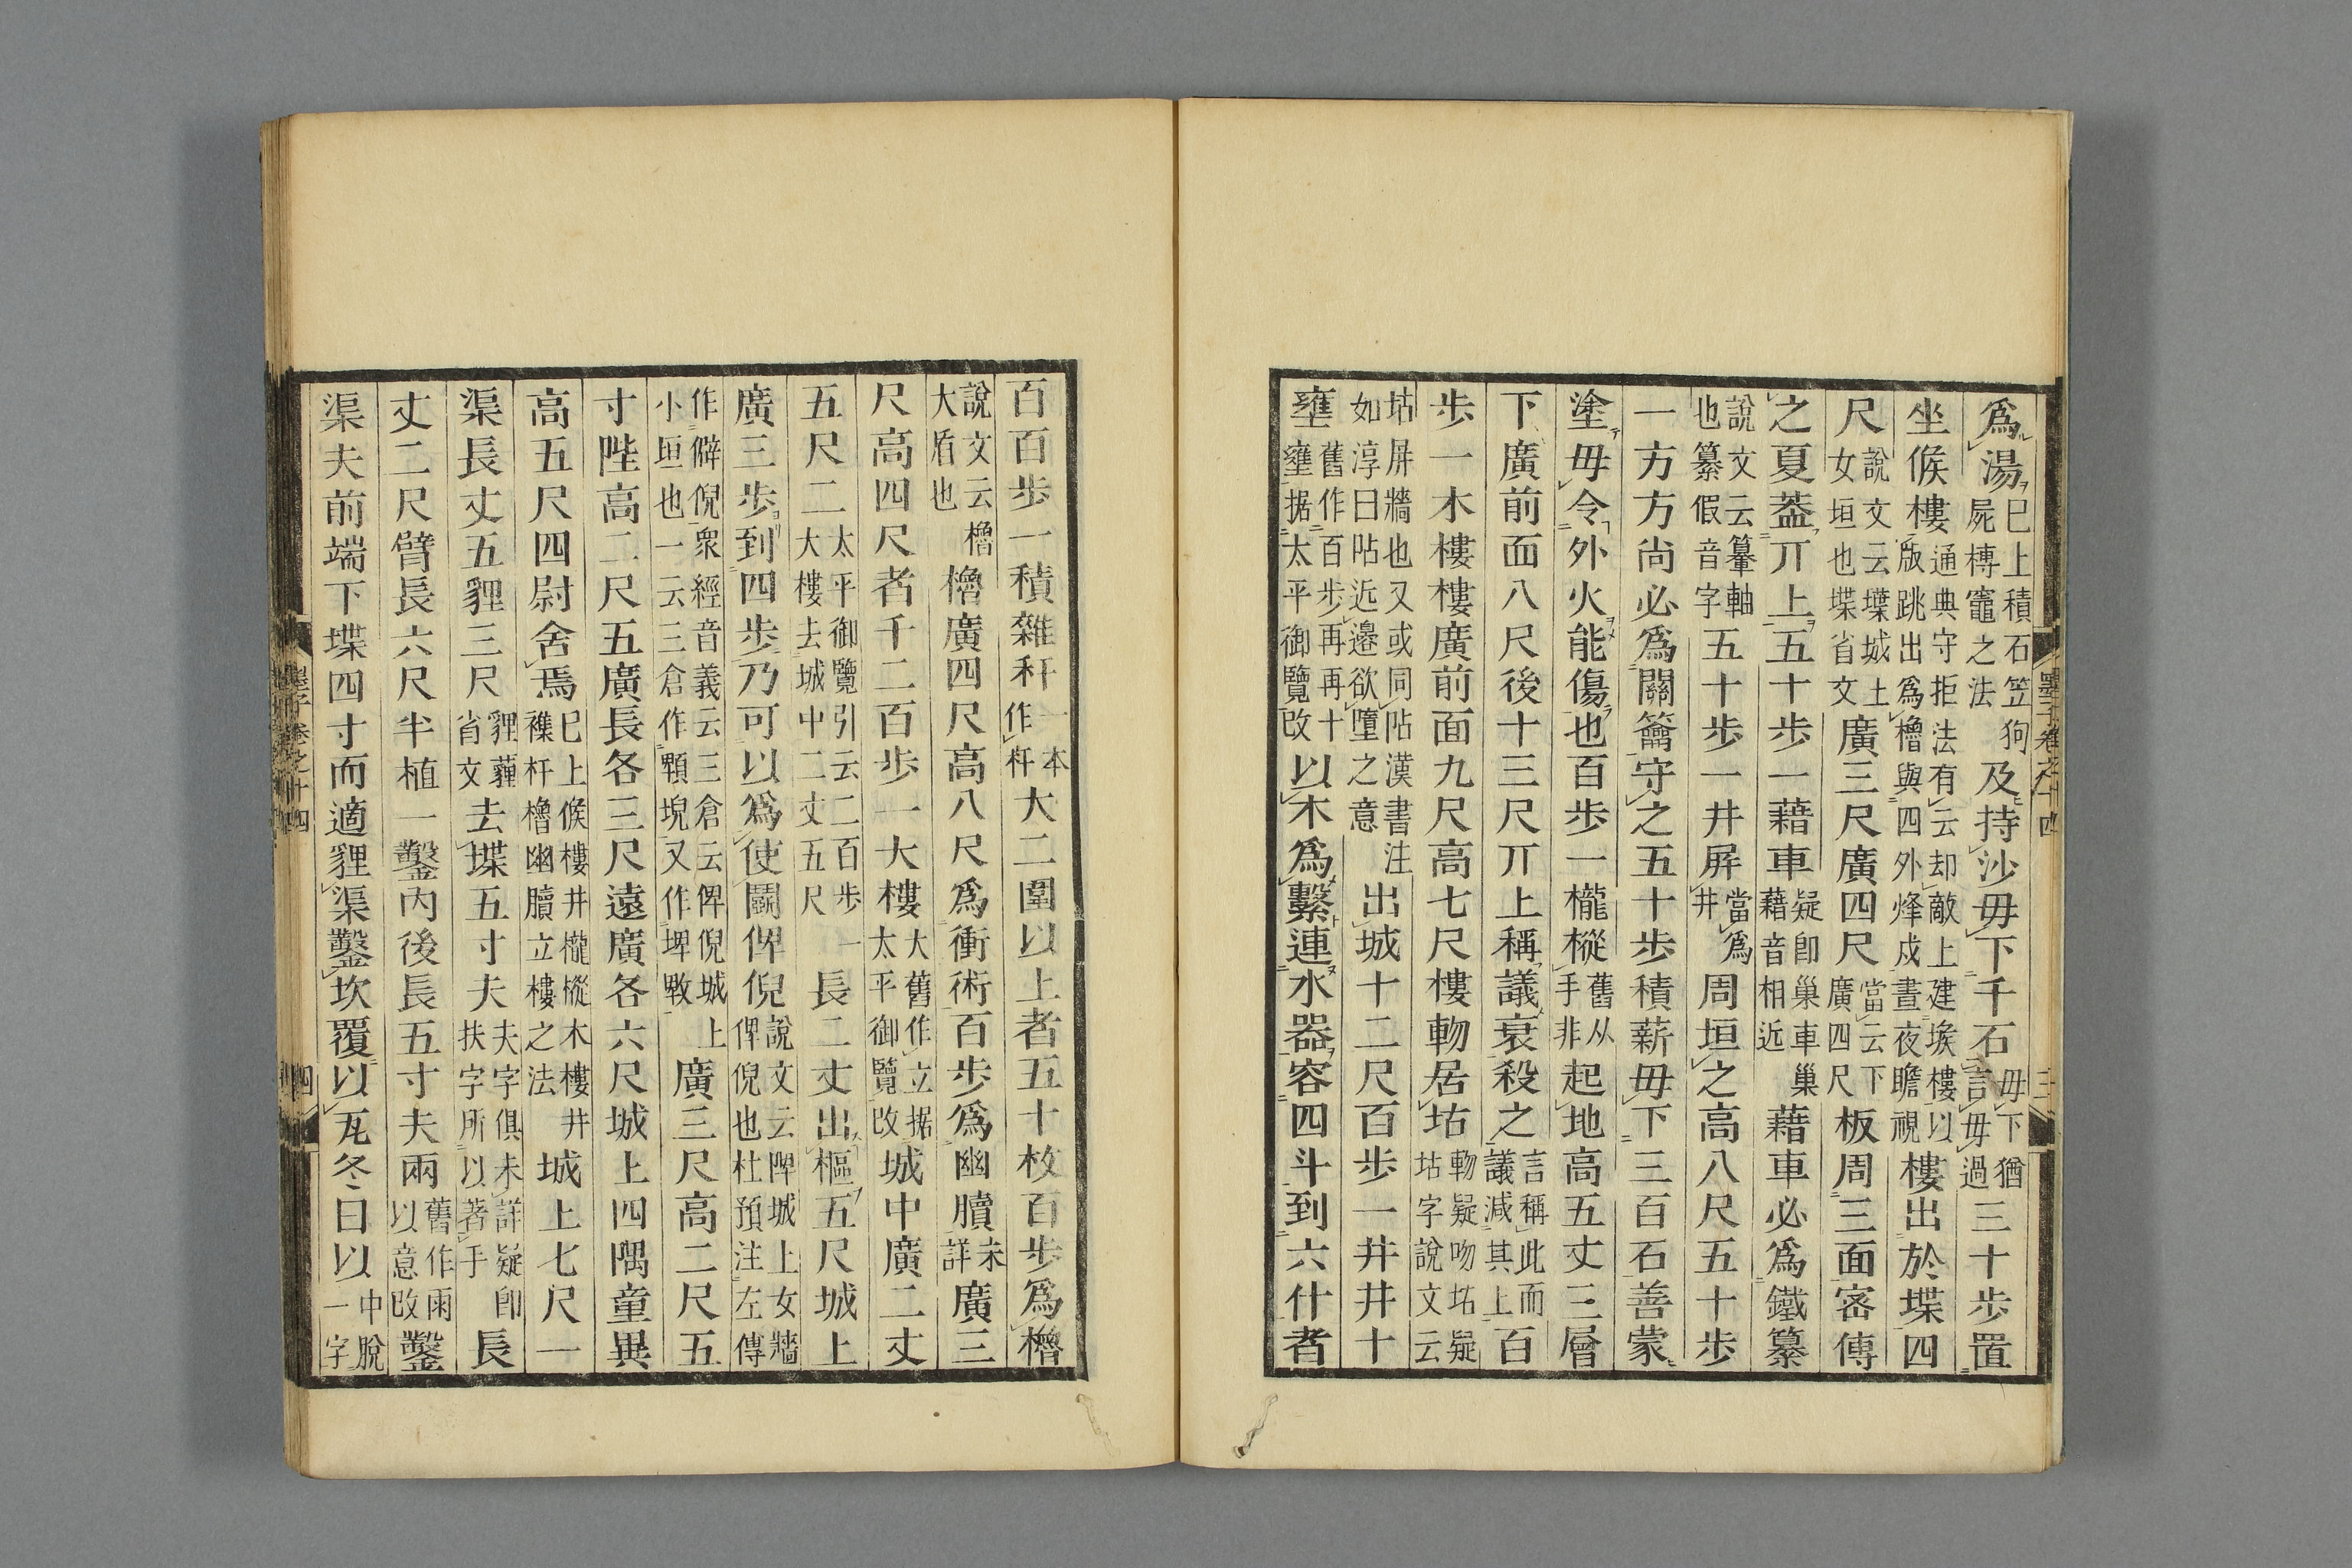 爲湯已上積石笠狗屍槫竈之法及持沙毋下千石毋下猶言毋過三十步置
坐候樓通典守拒法有云却敵上建堠樓以版跳出爲櫓與四外烽戍晝夜瞻視樓出於堞四
尺說文云㙔城土女垣也堞省文廣三尺廣四尺當云下廣四尺板周三面密傅
之夏蓋丌上五十步一藉車疑卽巢車巢藉音相近藉車必爲鐵纂
說文云軸也纂假音字五十步一井屏當爲井周垣之高八尺五十步
一方方尚必爲關籥守之五十步積薪毋下三百石善蒙
塗毋令外火能傷也百步一櫳樅舊从手非起地高五丈三層
下廣前面八尺後十三尺丌上稱議衰殺之言稱此而議減其上百
步一木樓樓廣前面九尺高七尺樓居坫疑吻坫疑坫字說文云
坫屏牆也又或同阽漢書注如淳曰阽近邉欲墮之意出城十二尺百步一井井十
罋舊作百步再再十罋据太平御覽改以木爲繫連水器容四斗到六什者
墨子卷之十四 三
百百步一積雜秆一本作杆大二圍以上者五十枚百步爲櫓
說文云櫓大盾也櫓廣四尺高八尺爲衝術百步爲幽䐁未詳廣三
尺高四尺者千二百步一大樓大舊作立据太平御覽改城中廣二丈
五尺二太平御覽引云二百步一大樓去城中二丈五尺長二丈出樞五尺城上
廣三步到四步乃可以爲使鬬俾倪說文云陴城上女牆俾倪也杜預注左傳
作僻倪衆經音義云三倉云俾倪城上小垣也一云三倉作顊堄又作埤㪏廣三尺高二尺五
寸陛高二尺五廣長各三尺遠廣各六尺城上四隅童異
高五尺四尉舍焉已上候樓井櫳樅木樓井襍杆櫓幽䐁立樓之法城上七尺一
渠長丈五貍三尺貍薶省文去堞五寸夫夫字俱未詳疑卽扶字所以著手長
丈二尺臂長六尺半植一鑿內後長五寸夫兩舊作雨以意改鑿
渠夫前端下堞四寸而適貍渠鑿坎覆以瓦冬日以中脫一字
墨子卷之十四 四